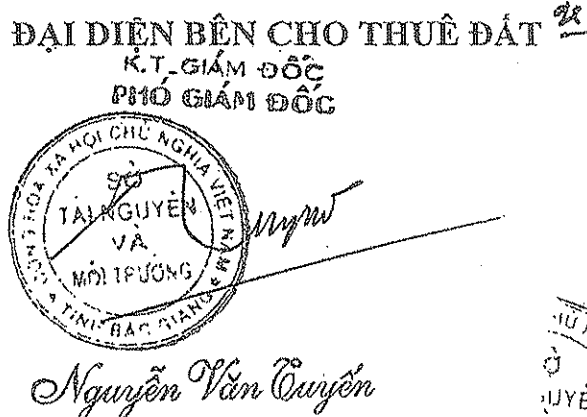 ĐẠI DIỆN BÊN CHO THUÊ ĐẤT
K.T. GIÁM ĐỐC
PHÓ GIÁM ĐỐC
CỘNG HÒA XÃ HỘI CHỦ NGHĨA VIỆT NAM
SỞ
TÀI NGUYÊN
VÀ
MÔI TRƯỜNG
TỈNH BẮC GIANG
Nguyễn Văn Tuyến